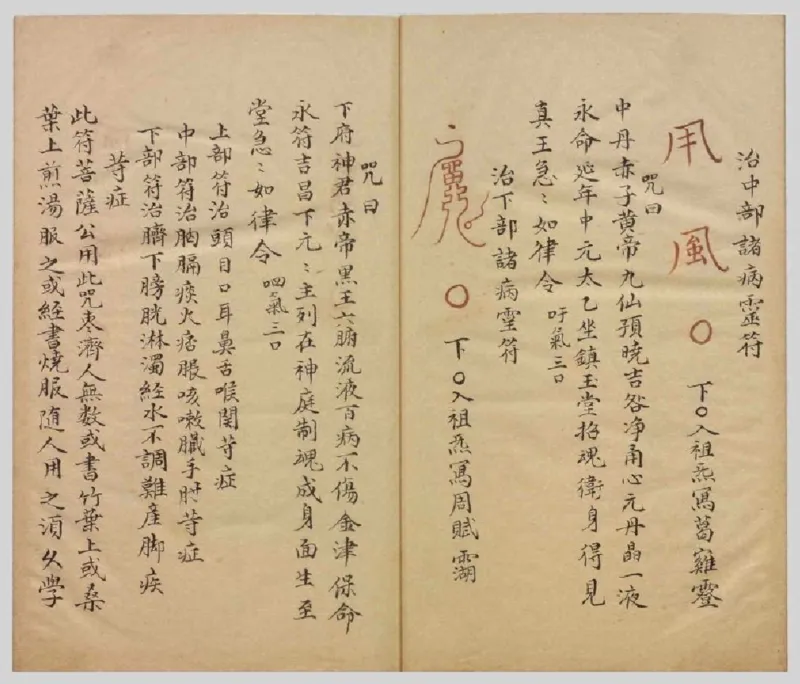 治中部諸病靈符
用 風 〇 下〇入祖炁寫葛雞
咒曰
中丹赤子黄帝九仙預曉吉咎净甬心元丹晶一液
永命延年中元太乙坐鎮玉堂招魂衛身得見
真王急〻如律令 吁氣三口
治下部諸病霊符
〇 下〇入祖炁寫周賦
咒曰
下府神君赤帝黑王六腑流液百病不傷金津保命
永符吉昌下元〻主列在神庭制魂成身面生至
堂急〻如律令 呬氣三口
上部符治頭目口耳鼻舌喉関等症
中部符治胸膈痰火痞服咳嗽臟手肘等症
下部符治臍下膀胱淋濁経水不調難產脚疾
等症
此符菩薩公用此咒枣濟人無数或書竹葉上或桑
葉上煎湯服之或経書燒服随人用之須久學